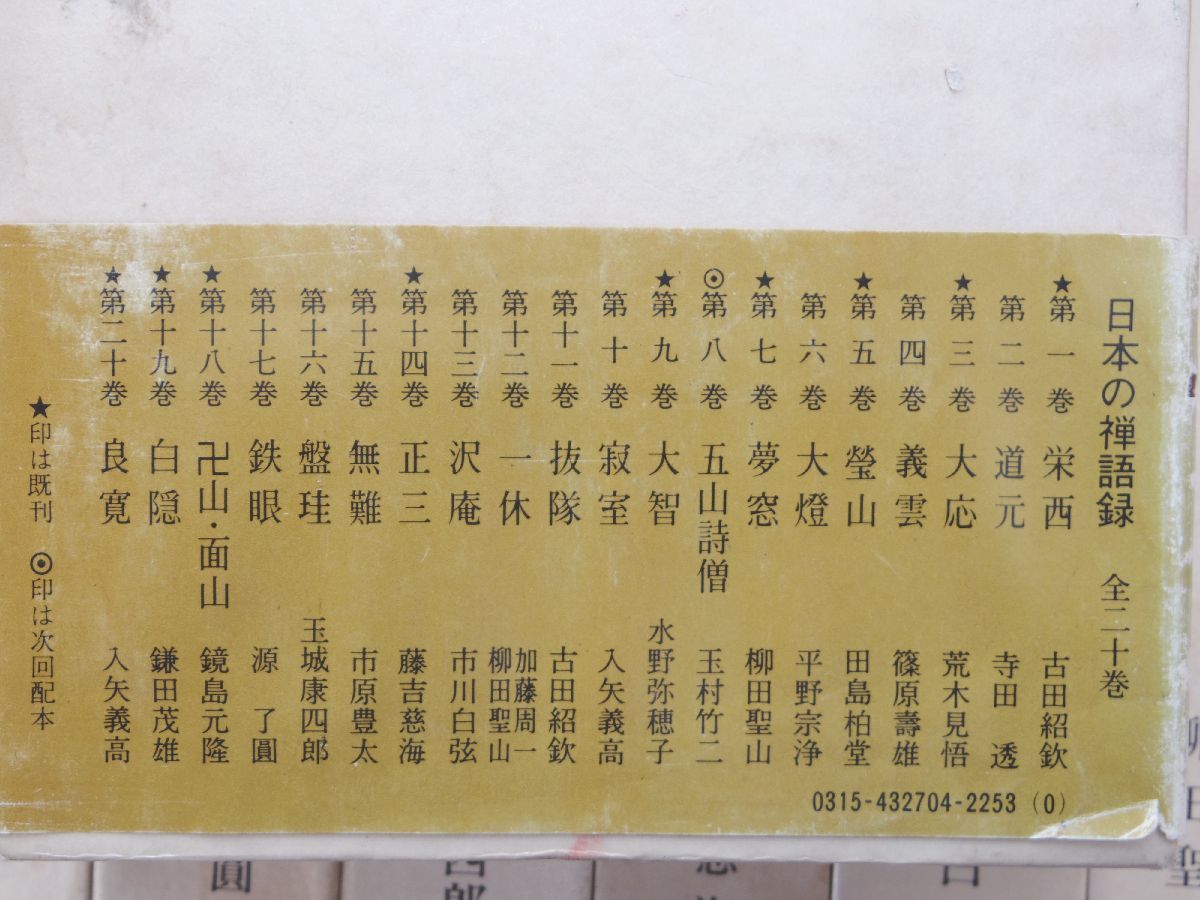 日本の禅語録 全二十巻
★第一巻 栄西 古田紹欽
第二巻 道元 寺田 透
★第三巻 大応 荒木見悟
第四巻 義雲 篠原壽雄
★第五巻 瑩山 田島柏堂
第六巻 大燈 平野宗浄
★第七巻 夢窓 柳田聖山
◉第八巻 五山詩僧 玉村竹二
★第九巻 大智 水野弥穂子
第十巻 寂室 入矢義高
第十一巻 抜隊 古田紹欽
第十二巻 一休 加藤周一 柳田聖山
第十三巻 沢庵 市川白弦
★第十四巻 正三 藤吉慈海
第十五巻 無難 市原豊太
第十六巻 盤珪 玉城康四郎
第十七巻 鉄眼 源 了圓
★第十八巻 卍山・面山 鏡島元隆
★第十九巻 白隠 鎌田茂雄
★第二十巻 良寛 入矢義高
★印は既刊 ◉印は次回配本
0315-432704-2253(0)
圓
四郎